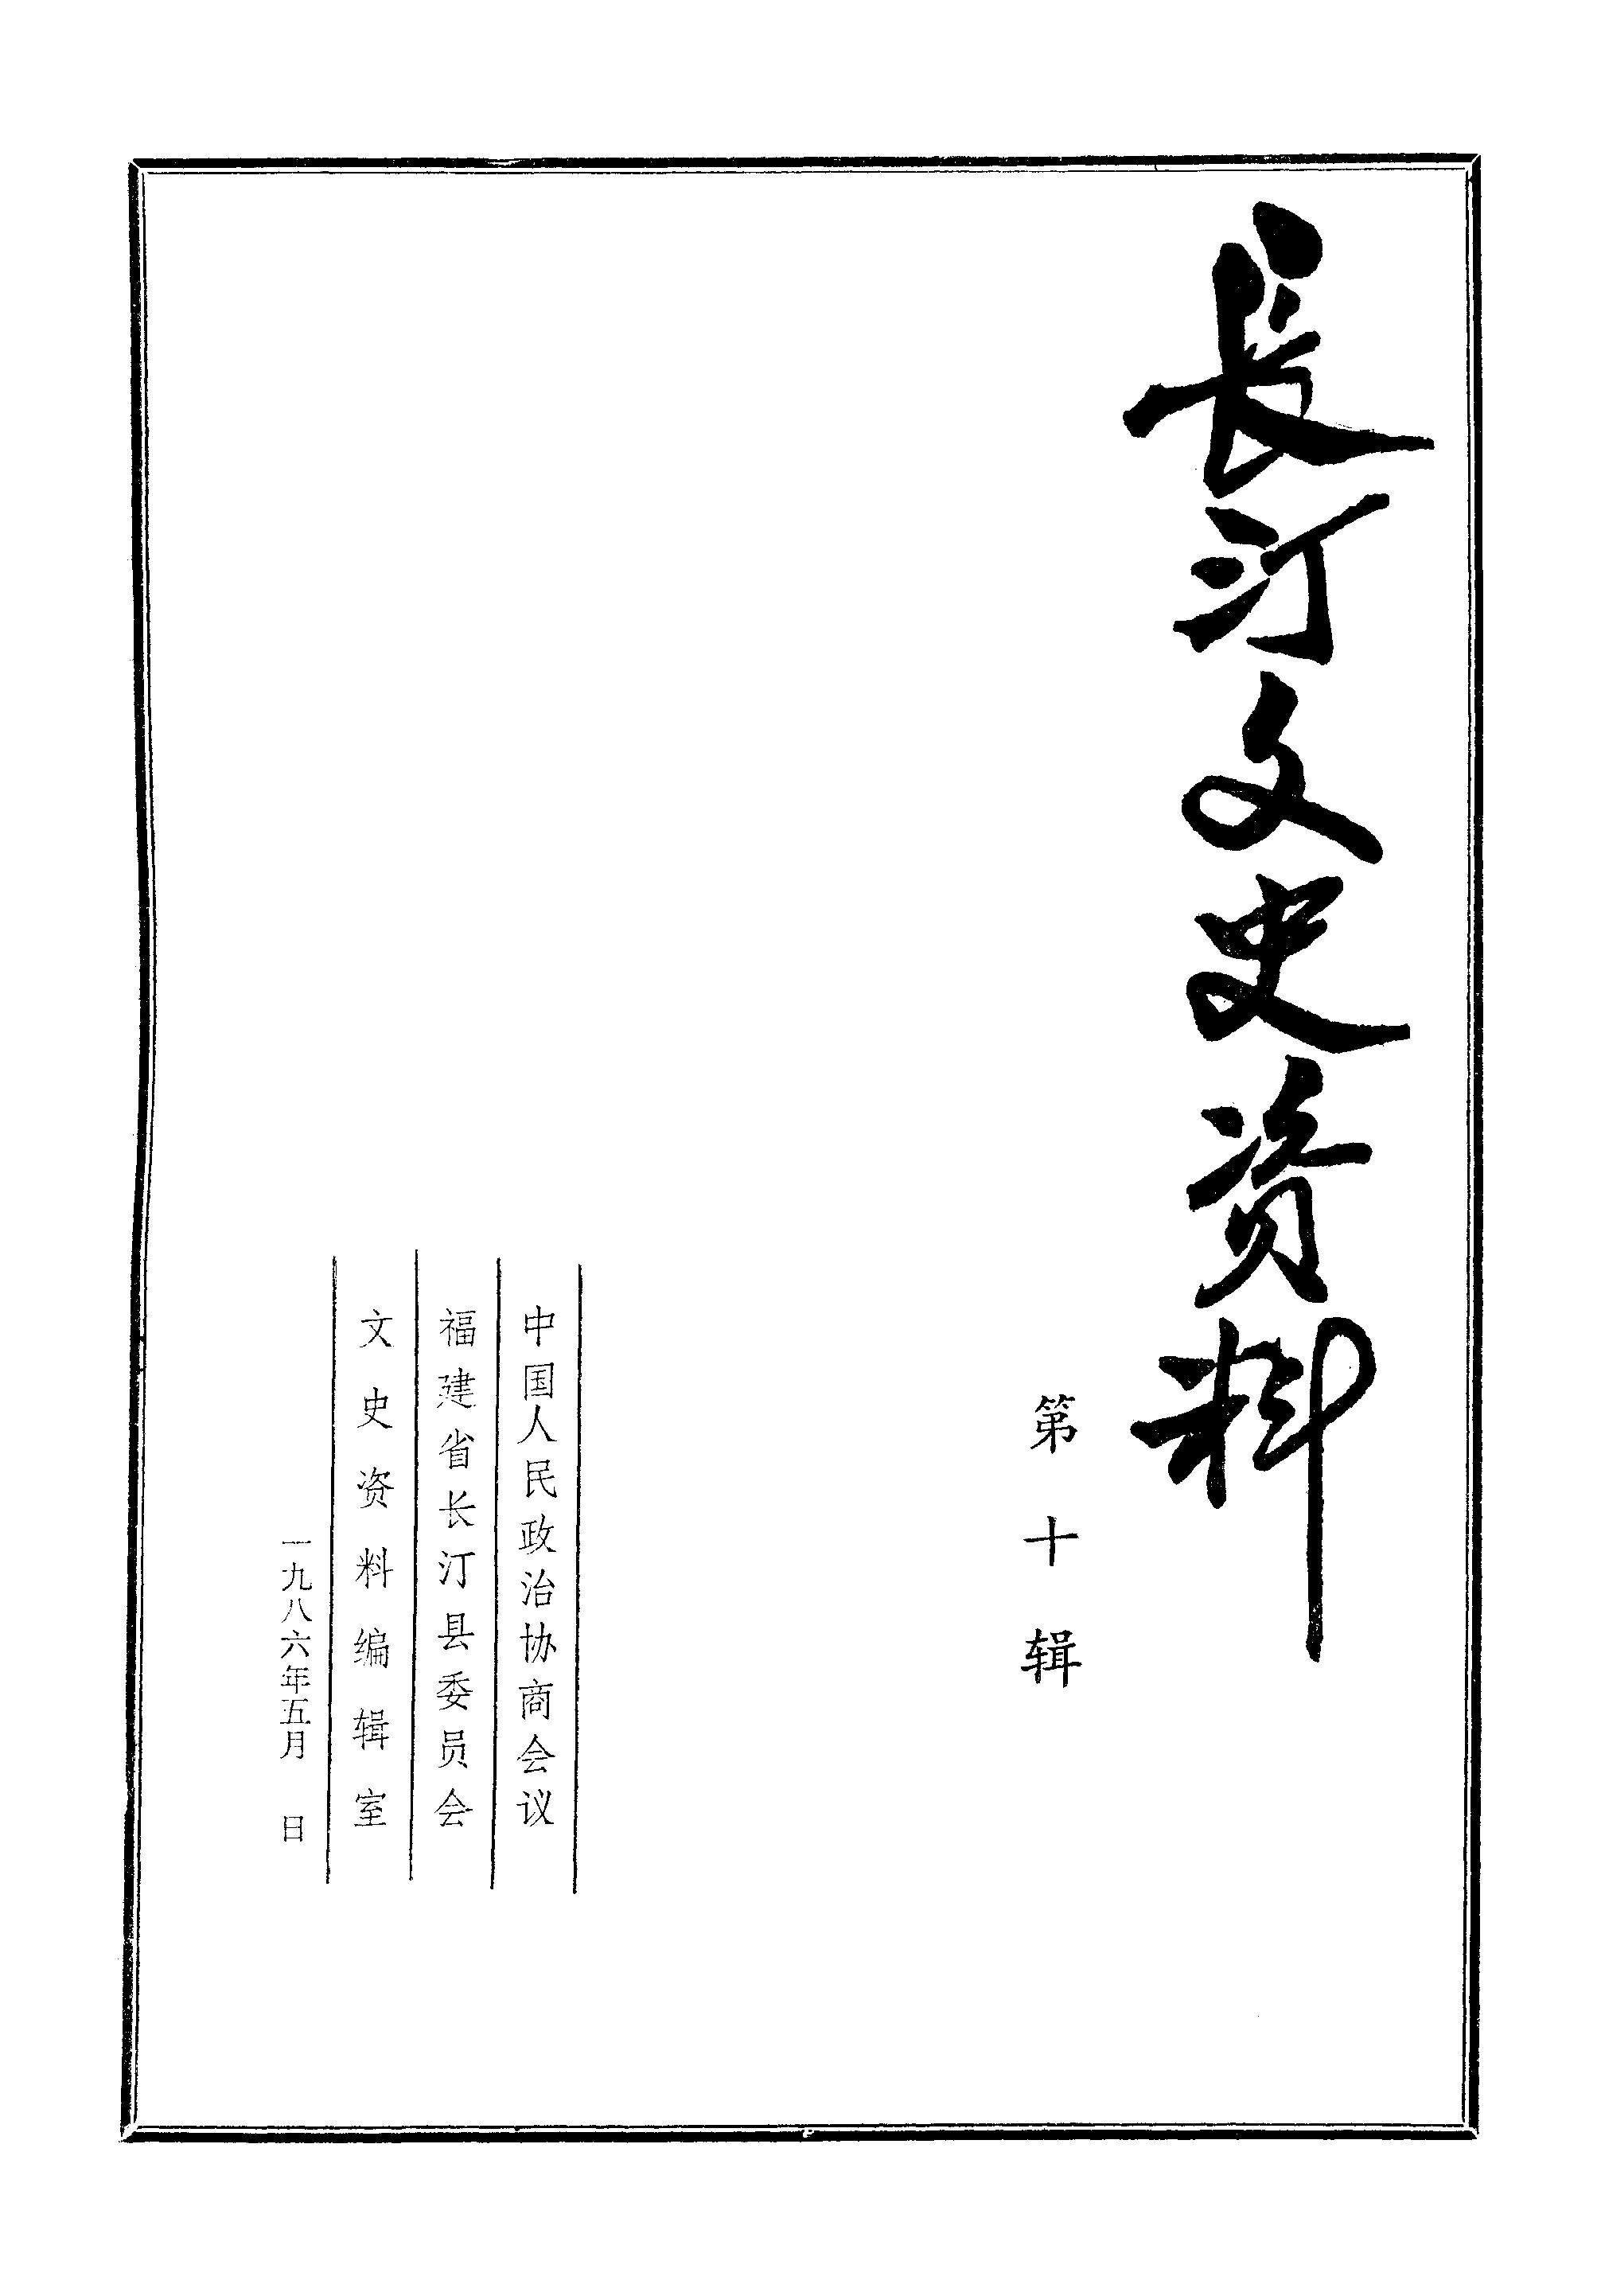 长汀文史资料
第十辑
中国人民政治协商会议
福建省长汀县委员会
文史资料编辑室
一九八六年五月 日